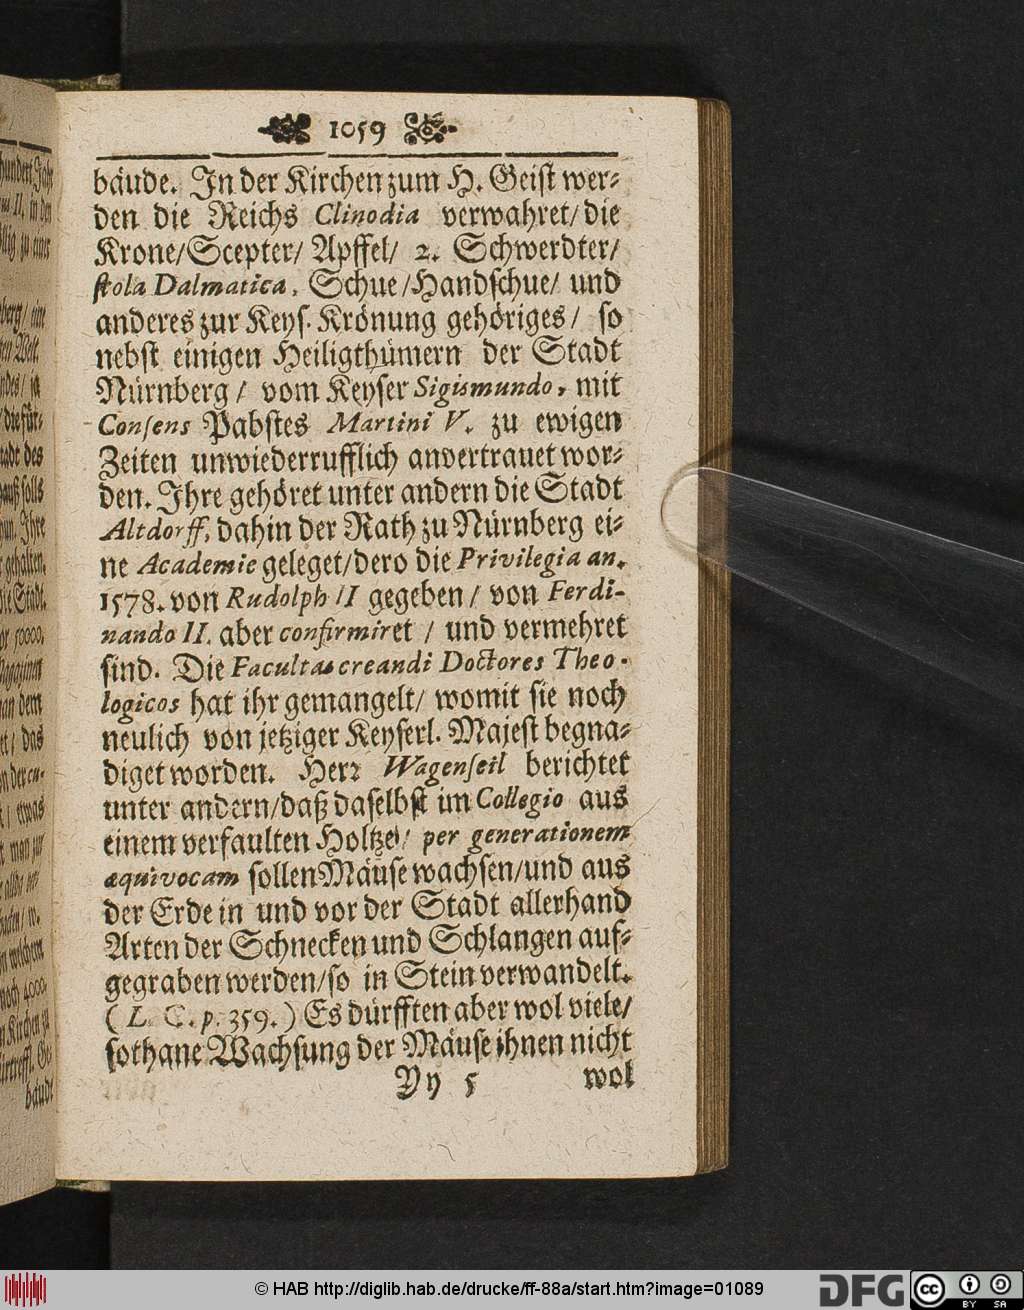 1059
bäude. In der Kirchen zum H. Geist wer⸗
den die Reichs Clinodia verwahret/ die
Krone/ Scepter/ Apffel/ 2. Schwerdter/
stola Dalmatica, Schue/ Handschue/ und
anderes zur Keys. Krönung gehöriges/ so
nebst einigen Heiligthümern der Stadt
Nürnberg/ vom Keyser Sigismundo, mit
Consens Pabstes Martini V. zu ewigen
Zeiten unwiederrufflich anvertrauet wor⸗
den. Ihre gehöret unter andern die Stadt
Altdorff, dahin der Rath zu Nürnberg ei⸗
ne Academie geleget/ dero die Privilegia an.
1578. von Rudolph II gegeben/ von Ferdi-
nando II. aber confirmiret / und vermehret
sind. Die Facultas creandi Doctores Theo-
logicos hat ihr gemangelt/ womit sie noch
neulich von jetziger Keyserl. Majest begna⸗
diget worden. Herr Wagenseil berichtet
unter andern/ daß daselbst im Collegio aus
einem verfaulten Holtze/ per generationem
æquivocam sollen Mäuse wachsen/ und aus
der Erde in und vor der Stadt allerhand
Arten der Schnecken und Schlangen auf⸗
gegraben werden/ so in Stein verwandelt.
(L. C. p. 359.) Es dürfften aber wol viele/
sothane Wachsung der Mäuse ihnen nicht
Yy 5 wol
hundert Jahr
II. in den
zu einer
berg/ ein
ja
die für⸗
des
solls
Ihre
gehalten.
die Stadt.
50000.
dem
das
etwas
man zur
welchem
noch 4000.
Kirchen zu
bäude
© HAB http://diglib.hab.de/drucke/ff-88a/start.htm?image=01089
DFG
cc
BY SA